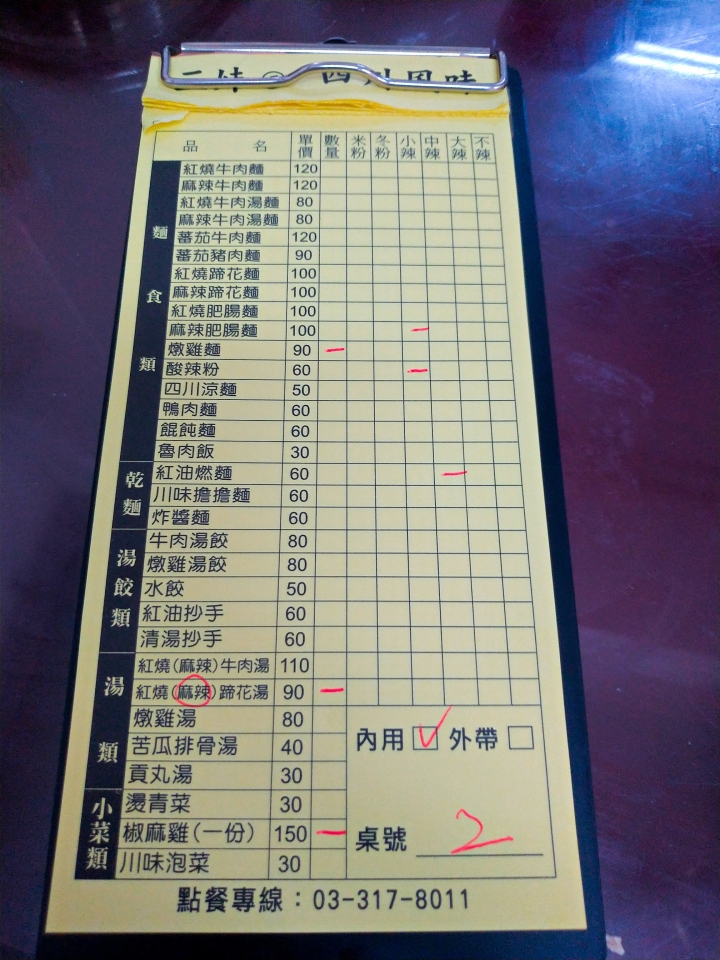 四川風味
品名 單價 數量 米粉 冬粉 小辣 中辣 大辣 不辣
麵食類
紅燒牛肉麵 120
麻辣牛肉麵 120
紅燒牛肉湯麵 80
麻辣牛肉湯麵 80
蕃茄牛肉麵 120
蕃茄豬肉麵 90
紅燒蹄花麵 100
麻辣蹄花麵 100
紅燒肥腸麵 100
麻辣肥腸麵 100 一
燉雞麵 90 一
酸辣粉 60 一
四川涼麵 50
鴨肉麵 60
餛飩麵 60
魯肉飯 30
乾麵
紅油燃麵 60 一
川味擔擔麵 60
炸醬麵 60
湯餃類
牛肉湯餃 80
燉雞湯餃 80
水餃 50
紅油抄手 60
清湯抄手 60
湯類
紅燒(麻辣)牛肉湯 110
紅燒(麻辣)蹄花湯 90 一
燉雞湯 80
苦瓜排骨湯 40
貢丸湯 30
小菜類
燙青菜 30
椒麻雞(一份) 150 一
川味泡菜 30
內用 ✓ 外帶
桌號 2
點餐專線：03-317-8011